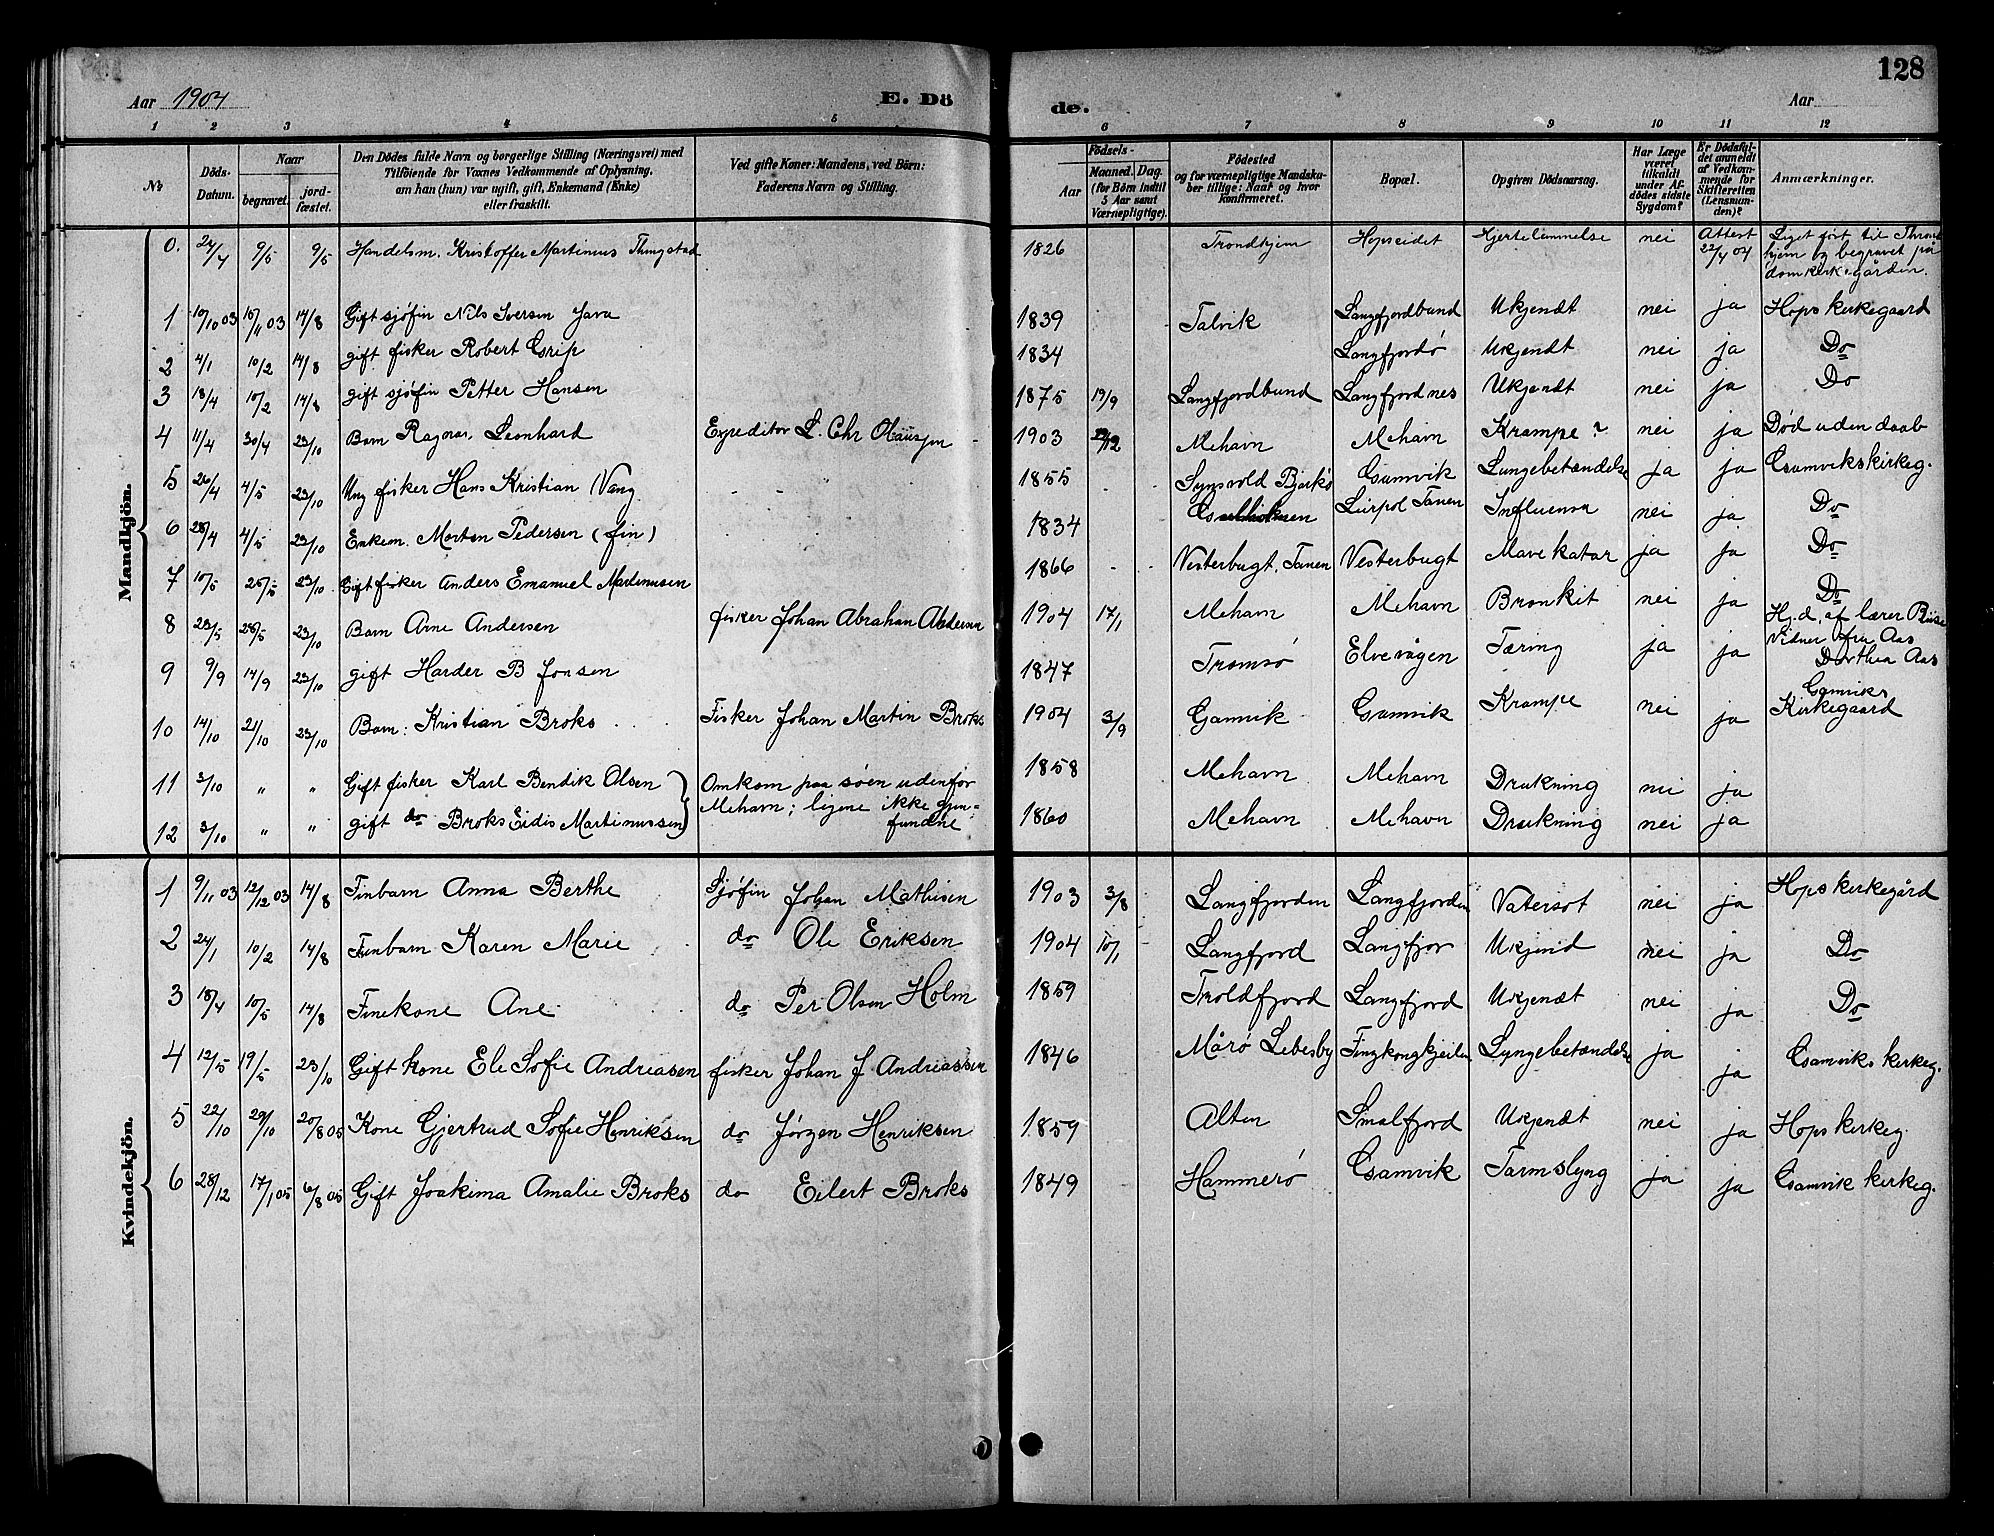 128
Aar 1904 E. Dö de. Aar
1 2 3 4 5 6 7 8 9 10 11 12
No
Döds-
Datum.
Naar
begravet.
jord-
fæstet.
Den Dödes fulde Navn og borgerlige Stilling (Næringsvei) med
Tilföiende for Voxnes Vedkommende af Oplysning,
om han (hun) var ugift, gift, Enkemand (Enke)
eller fraskilt.
Ved gifte Koner: Mandens, ved Börn:
Faderens Navn og Stilling.
Födsels-
Aar
Maaned. Dag.
(for Börn indtil
5 Aar samt
Værnepligtige).
Födested
og for værnepligtige Mandska-
ber tillige: Naar og hvor
konfirmeret.
Bopæl.
Opgiven Dödsaarsag.
Har Læge
været
tilkaldt
under Af-
dödes sidste
Sygdom?
Er Dödsfal-
det anmeldt
af Vedkom-
mende for
Skifteretten
(Lensman-
den)?
Anmærkninger.
Mandkjön.
0. 24/4 9/5 9/5 Handelsm. Kristoffer Martinius Thingstad 1826 Trondhjem Hopseidet Hjertelammelse nei Attest 22/4 04 Liget ført til Thrond
hjem og begravet på
domkirkegården.
1 10/10 03 15/11 03 14/8 Gift sjøfin Nils Iversen Java 1839 Talvik Langfjordbund Ukjendt nei ja Hops kirkegaard
2 4/1 10/2 14/8 gift fisker Robert Grip 1834 Langfjordø Ukjendt nei ja Do
3 18/4 10/2 14/8 gift sjøfin Petter Hansen 1875 19/9 Langfjordbund Langfjordnes Ukjendt nei ja Do
4 11/4 30/4 23/10 Barn Ragnar Leonhard Expeditor L. Chr Olaussen 1903 /12 Mehavn Mehavn Krampe? nei ja Død uden daab
5 26/4 4/5 23/10 Ung fisker Hans Kristian Vang 1855 Bjarkø Gamvik Lungebetændelse ja ja Gamvikskirkeg.
6 28/4 4/5 23/10 Enkem. Morten Pedersen (fin) 1834 Tanen Influensa nei ja Do
7 10/5 25/5 23/10 Gift fisker Anders Emanuel Martinusen 1866 Vesterbugt. Tanen Vesterbugt Mavekatar ja ja Do
8 23/5 28/5 23/10 Barn Arne Andersen fisker Johan Abrahan Andersen 1904 17/1 Mehavn Mehavn Bronkit nei ja Do
Hj.d. af lærer
Vidner fru Aas
Dorthea Aas
9 9/9 14/9 23/10 gift Harder B Jonsen 1847 Tromsø Elvevågen Tæring ja ja
10 14/10 21/10 23/10 Barn: Kristian Broks Fisker Johan Martin Broks 1904 3/9 Gamvik Gamvik Krampe nei ja Gamviks
Kirkegaard
11 3/10 " " Gift fisker Karl Bendik Olsen Omkom paa søen udenfor 1858 Mehavn Mehavn Drukning nei ja
Mehavn; ligene ikke gjen-
12 3/10 " " gift do Broks Eidis Martinussen fundne 1860 Mehavn Mehavn Drukning nei ja
Kvindekjön.
1 9/11 03 12/12 03 14/8 Finbarn Anna Berthe Sjøfin Johan Mathisen 1903 3/8 Langfjorden Langfjorden Vatersot nei ja Hops kirkegård
2 24/1 10/2 14/8 Finbarn Karen Marie do Ole Eriksen 1904 10/1 Langfjord Langfjor Ukjend nei ja Do
3 18/4 10/5 14/8 Finekone Ane do Per Olsen Holm 1859 Troldfjord Langfjord Ukjendt nei ja Do
4 12/5 19/5 23/10 Gift kone Ele Sofie Andreasen fisker Johan J. Andreassen 1846 Mårø Lebesby Finzkongkjeilen Lyngebetændelse ja ja Gamviks kirkeg.
5 22/10 29/10 20/8 05 Kone Gjertrud Sofie Henriksen do Jørgen Henriksen 1859 Alten Smalfjord Ukjendt nei ja Hops kirkeg
6 28/12 17/1 05 6/8 05 Gift Joakima Amalie Broks do Eilert Broks 1849 Hammerø Gamvik Tarmslyng ja ja Gamvik kirkeg.